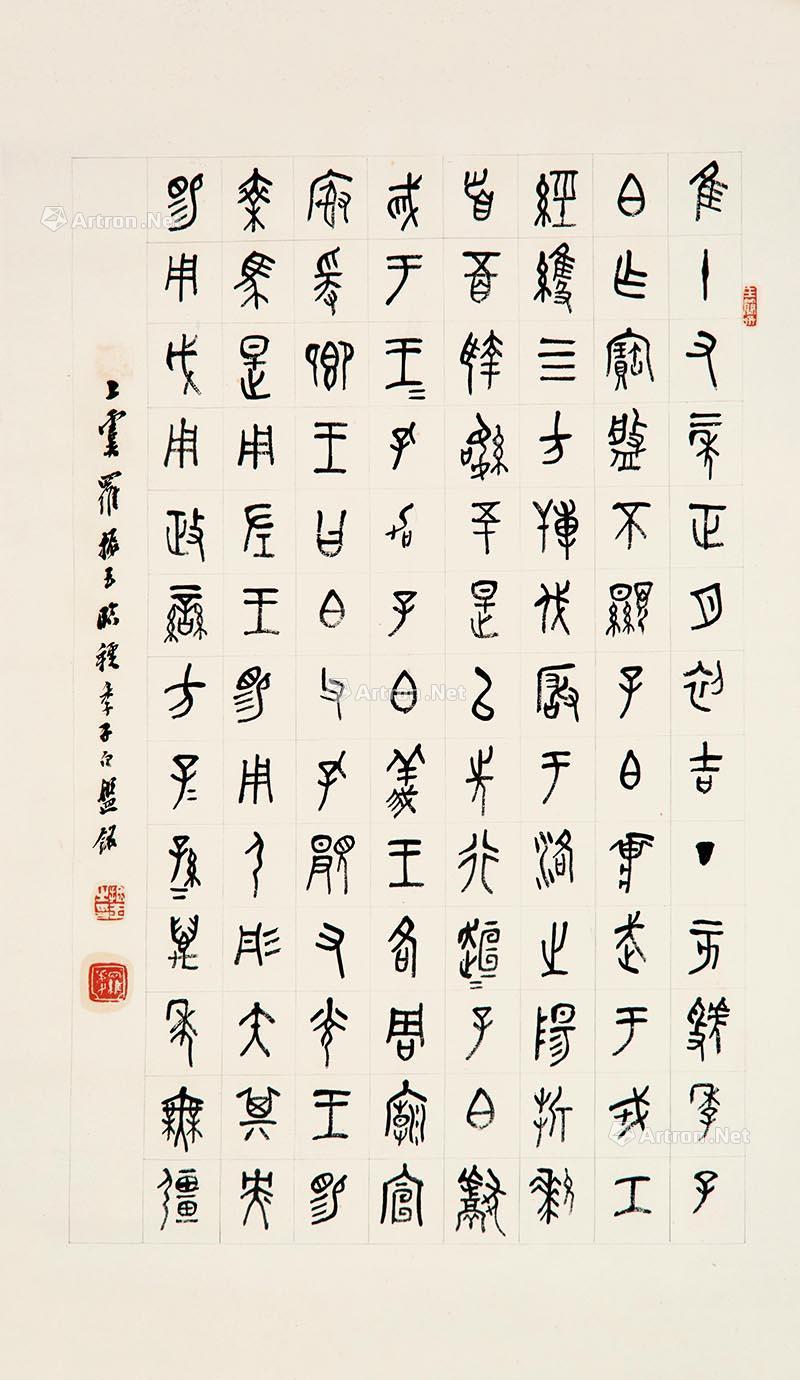 隹十又二年正月初吉丁亥虢季子
白乍寶盤不顯子白壯武于戎工
經維四方搏伐厰于洛之陽折𤞤
首五百執訊五十是以先行趄=子白獻
聝于王=孔加子白義王各周廟宣
榭爰鄉王曰白父孔顯又光王賜
乘馬是用左王賜用弓彤矢其央
賜用戉用政蠻方子=孫=萬年無疆
上虞羅振玉臨虢季子白盤銘
Artron.Net
Artron.Net
Artron.Net